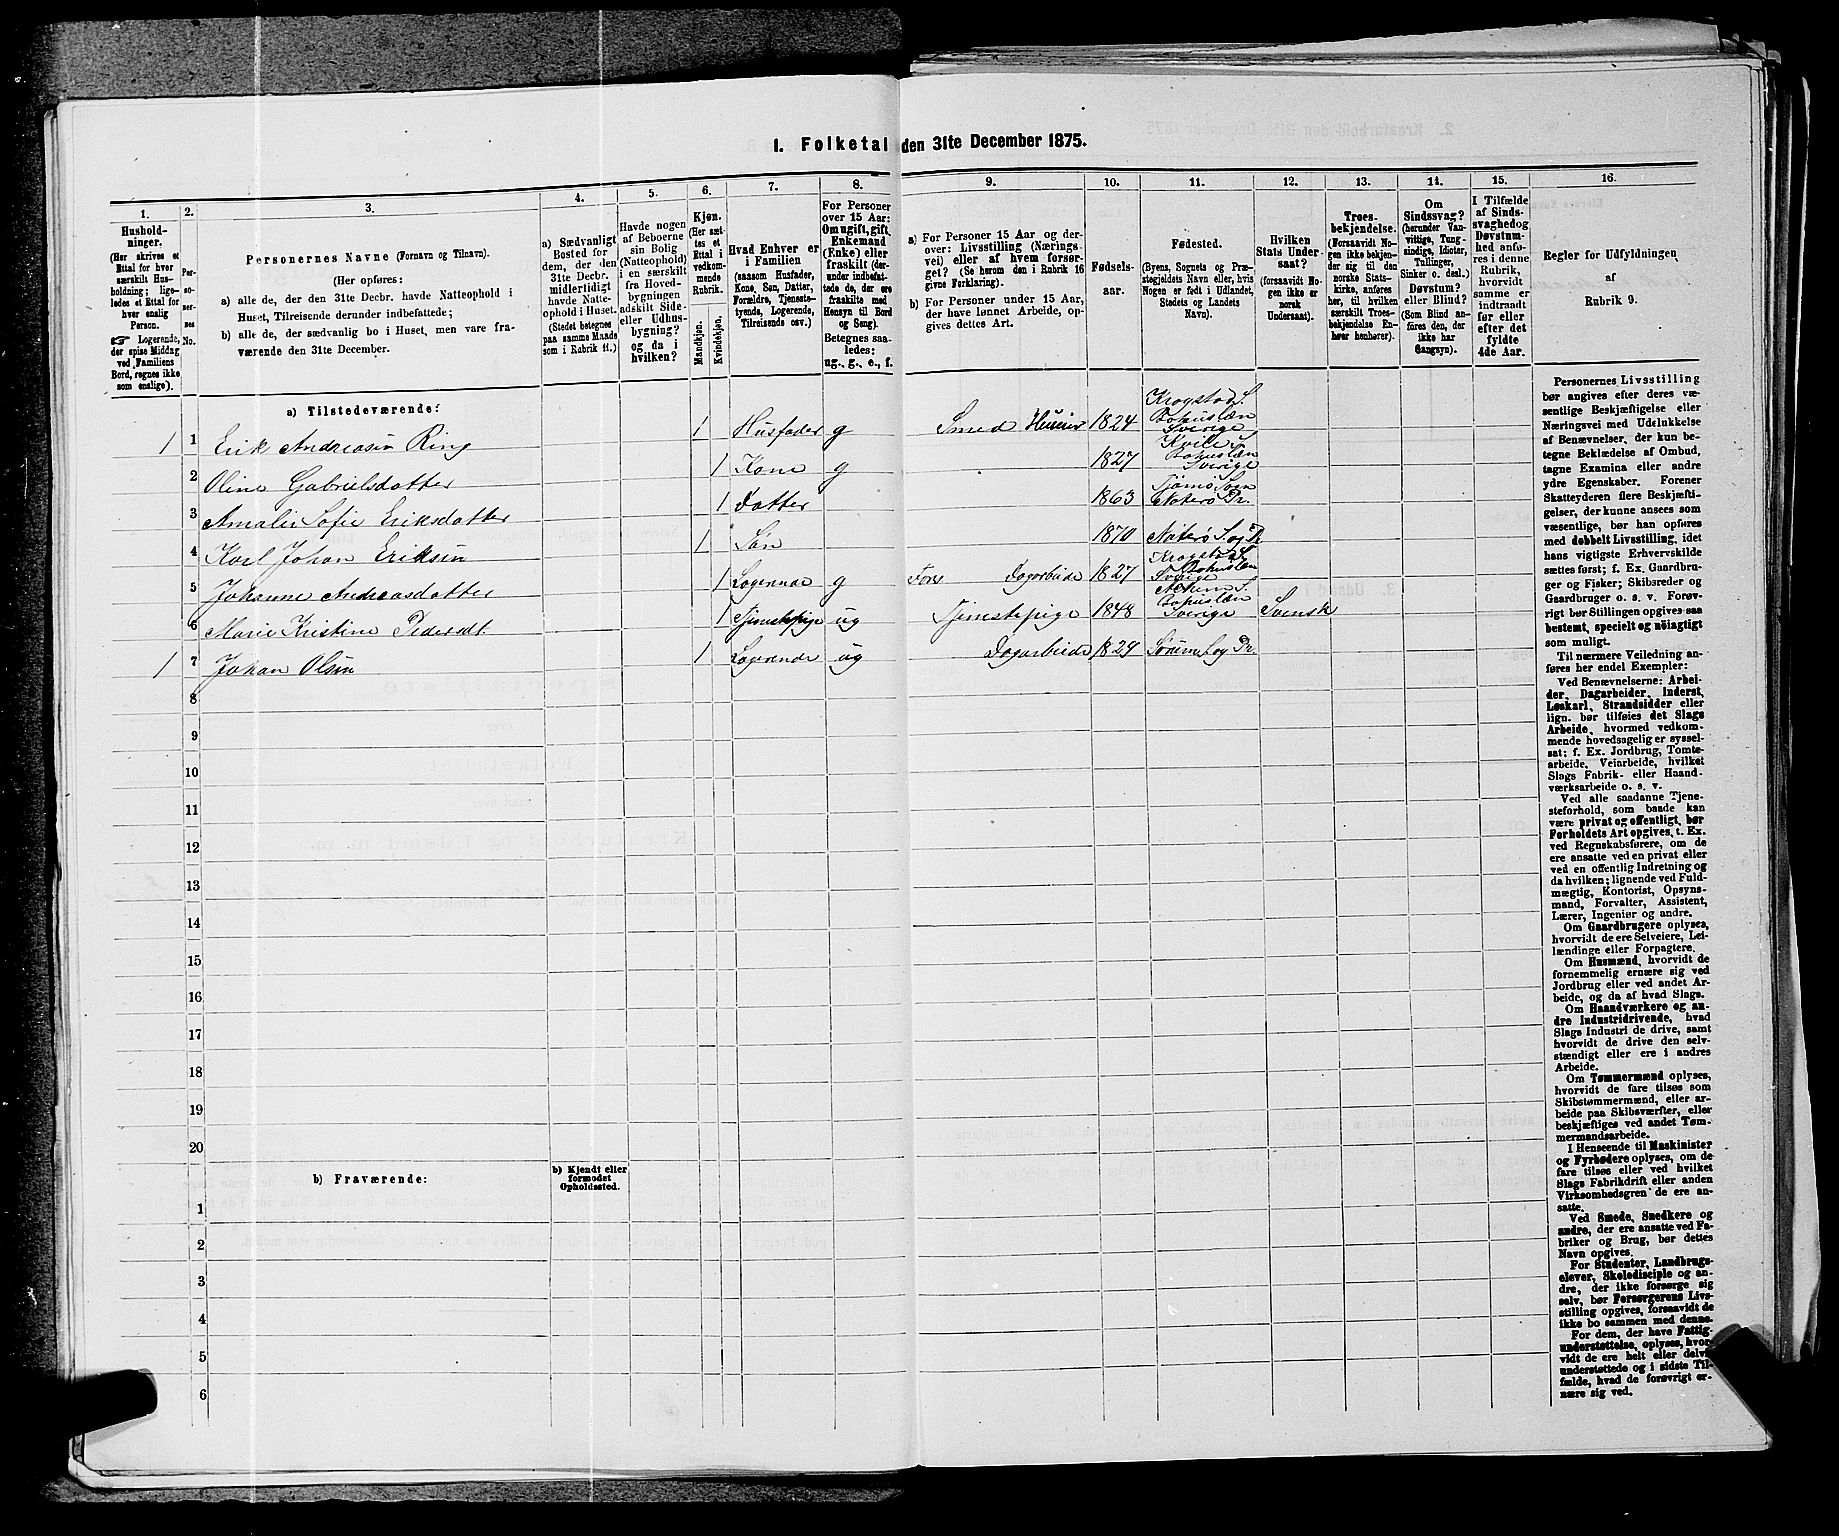 1. Folketal den 31te December 1875.
1.
2.
3.
4.
5.
6.
7.
8.
9.
10.
11.
12.
13.
14.
15.
16.
Hushold-
ninger.
(Her skrives et
Ettal for hver
særskilt Hus-
holdning; lige-
ledes et Ettal for
hver enslig
Person.
☞ Logerende,
der spise Middag
ved Familiens
Bord, regnes ikke
som enslige).
Per-
so-
ner-
nes
No.
Personernes Navne (Fornavn og Tilnavn).
(Her opføres:
a) alle de, der den 31te Decbr. havde Natteophold i
Huset, Tilreisende derunder indbefattede;
b) alle de, der sædvanlig bo i Huset, men vare fra-
værende den 31te December.
a) Sædvanligt
Bosted for
dem, der den
31te Decbr.
midlertidigt
havde Natte-
ophold i Huset.
(Stedet betegnes
paa samme Maade
som i Rubrik 11.)
Havde nogen
af Beboerne
sin Bolig
(Natteophold)
i en særskilt
fra Hoved-
bygningen
adskilt Side-
eller Udhus-
bygning?
og da i
hvilken?
Kjøn.
(Her sæt-
tes et
Ettal i
vedkom-
mende
Rubrik.
Mandkjøn.
Kvindekjøn.
Hvad Enhver er
i Familien
(saasom Husfader,
Kone, Søn, Datter,
Forældre, Tjeneste-
tyende, Logerende,
Tilreisende osv.)
For Personer
over 15 Aar:
Om ugift, gift,
Enkemand
(Enke) eller
fraskilt (der-
under indbefat-
tede de, der ere
fraskilte med
Hensyn til Bord
og Seng).
Betegnes saa-
ledes:
ug., g., e., f.
a) For Personer 15 Aar og der-
over: Livsstilling (Nærings-
vei) eller af hvem forsør-
get? (Se herom den i Rubrik 16
givne Forklaring).
b) For Personer under 15 Aar,
der have lønnet Arbeide, op-
gives dettes Art.
Fødsels-
aar.
Fødested.
(Byens, Sognets og Præ-
stegjeldets Navn eller, hvis
Nogen er født i Udlandet,
Stedets og Landets
Navn).
Hvilken
Stats Under-
saat?
(forsaavidt No-
gen ikke er
norsk
Undersaat).
Troes-
bekjendelse.
(Forsaavidt No-
gen ikke bekjen-
der sig til den
norske Stats-
kirke, anføres
her, til hvilken
særskilt Troes-
bekjendelse En-
hver henhører).
Om
Sindssvag?
(herunder Van-
vittige, Tung-
sindige, Idioter,
Tullinger,
Sinker o. desl.)
Døvstum?
eller Blind?
(Som Blind an-
føres den, der
ikke har
Gangsyn).
I Tilfælde
af Sinds-
svaghed og
Døvstum-
hed anfø-
res i denne
Rubrik,
hvorvidt
samme er
indtraadt
før eller
efter det
fyldte
4de Aar.
Regler for Udfyldningen
af
Rubrik 9.
a) Tilstedeværende:
1 1 Erik Andreasen Ring 1 Husfader g Smed Huseier 1824 Krogstad S. Bohuslæn Sverige
2 Oline Gabrielsdatter 1 Kone g 1827 Kville S. Bohuslæn Sverige
3 Amalie Sofie Eriksdatter 1 Datter 1863 Tjømø Sogn Nøterø Pr.
4 Karl Johan Eriksen 1 Søn 1870 Nøterø S. og Pr.
5 Johanne Andreasdatter 1 Logerende g Dagarbeide 1827 Krogstad S. Bohuslæn Sverige
6 Marie Kristine Pedersdt. 1 Tjenestepige ug Tjenestepige 1848 Bohuslæn Sverige Svensk
1 7 Johan Olsen 1 Logerende ug Dagarbeide 1829 Sørum S. og Pr.
8
9
10
11
12
13
14
15
16
17
18
19
20
b) Fraværende:
b) Kjendt eller
formodet
Opholdssted.
1
2
3
4
5
6
Personernes Livsstilling
bør angives efter deres væ-
sentlige Beskjæftigelse eller
Næringsvei med Udelukkelse
af Benævnelser, der kun be-
tegne Beklædelse af Ombud,
tagne Examina eller andre
ydre Egenskaber. Forener
Skatteyderen flere Beskjæfti-
gelser, der kunne ansees som
væsentlige, bør han opføres
med dobbelt Livsstilling, idet
hans vigtigste Erhvervskilde
sættes først; f. Ex. Gaardbru-
ger og Fisker; Skibsreder og
Gaardbruger o. s. v. Forøv-
rigt bør Stillingen opgives saa
bestemt, specielt og nøiagtigt
som muligt.
Til nærmere Veiledning an-
føres her endel Exempler:
Ved Benævnelserne: Arbei-
der, Dagarbeider, Inderst,
Løskarl, Strandsidder eller
lign. bør tilføies det Slags
Arbeide, hvormed vedkom-
mende hovedsagelig er syssel-
sat; f. Ex. Jordbrug, Tomte-
arbeide, Veiarbeide, hvilket
Slags Fabrik- eller Haand-
værksarbeide o. s. v.
Ved alle saadanne Tjene-
steforhold, som baade kan
være privat og offentligt, bør
Forholdets Art opgives, t. Ex.
ved Regnskabsførere, om de
ere ansatte ved en privat eller
ved en offentlig Indretning og
da hvilken; lignende ved Fuld-
mægtig, Kontorist, Opsyns-
mand, Forvalter, Assistent,
Lærer, Ingeniør og andre.
Om Gaardbrugere oplyses,
hvorvidt de ere Selveiere, Lei-
lændinge eller Forpagtere.
Om Husmænd, hvorvidt de
fornemmelig ernære sig ved
Jordbrug eller ved andet Ar-
beide, og da af hvad Slags.
Om Haandværkere og an-
dre Industridrivende, hvad
Slags Industri de drive, samt
hvorvidt de drive den selv-
stændigt eller ere i andres
Arbeide.
Om Tømmermænd oplyses,
hvorvidt de fare tilsøs som
Skibstømmermænd, eller ar-
beide paa Skibsværfter, eller
beskjæftiges ved andet Tøm-
mermandsarbeide.
I Henseende til Maskinister
og Fyrbødere oplyses, om de
fare tilsøs eller ved hvilket
Slags Fabrikdrift eller anden
Virksomhedsgren de ere an-
satte.
Ved Smede, Snedkere og
andre, der ere ansatte ved Fa-
briker og Brug, bør dettes
Navn opgives.
For Studenter, Landbrugs-
elever, Skoledisciple og an-
dre, der ikke forsørge sig
selv, bør Forsørgerens Livs-
stilling opgives, forsaavidt de
ikke bo sammen med denne.
For dem, der have Fattig-
understøttelse, oplyses, hvor-
vidt de ere helt eller delvis
understøttede og i sidste Til-
fælde, hvad de forøvrigt er-
nære sig ved.